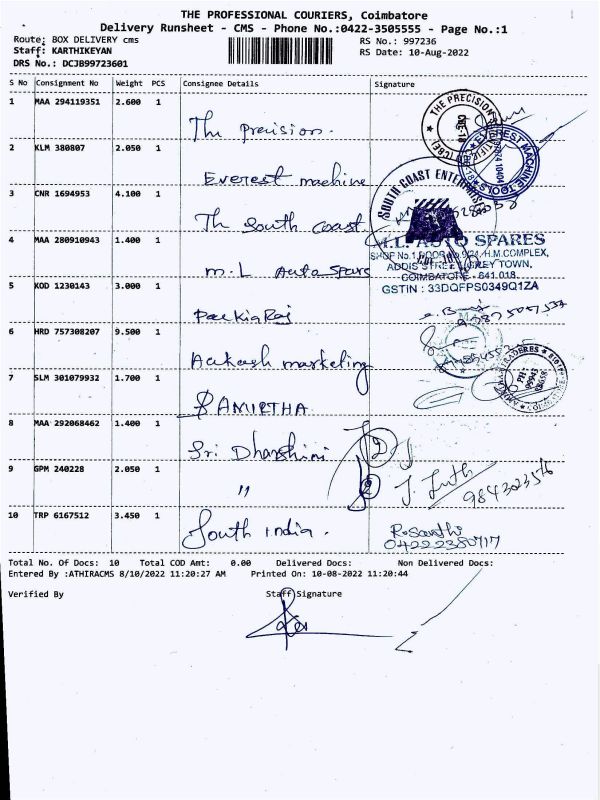 THE PROFESSIONAL COURIERS, Coimbatore
Delivery Runsheet - CMS - Phone No.:0422-3505555 - Page No.:1
Route: BOX DELIVERY cms RS No.: 997236
Staff: KARTHIKEYAN RS Date: 10-Aug-2022
DRS No.: DCJB99723601
S No Consignment No Weight PCS Consignee Details Signature
1 MAA 294119351 2.600 1 The precision.
THE PRECISION SCIENTIFIC (CBE)
CBE-18
2 KLM 380807 2.050 1 Everest machine
EVEREST MACHINE TOOLS
3 CNR 1694953 4.100 1 The South Coast
SOUTH COAST ENTERPRISES
4 MAA 280910943 1.400 1 M.L Auto Spars
M.L. AUTO SPARES
SHOP No.1, DOOR No. H.M.COMPLEX,
ADDIS STREET, GREY TOWN,
COIMBATORE - 641 018.
GSTIN : 33DQFPS0349Q1ZA
5 KOD 1230143 3.000 1 PackiaRaj
6 HRD 757308207 9.500 1 Aakash marketing
7 SLM 301079932 1.700 1 AMIRTHA
8 MAA 292068462 1.400 1 Sri Dharshini 2
9 GPM 240228 2.050 1 " 2
10 TRP 6167512 3.450 1 South India. R. Santhi
04222380717
Total No. Of Docs: 10 Total COD Amt: 0.00 Delivered Docs: Non Delivered Docs:
Entered By :ATHIRACMS 8/10/2022 11:20:27 AM Printed On: 10-08-2022 11:20:44
Verified By Staff Signature